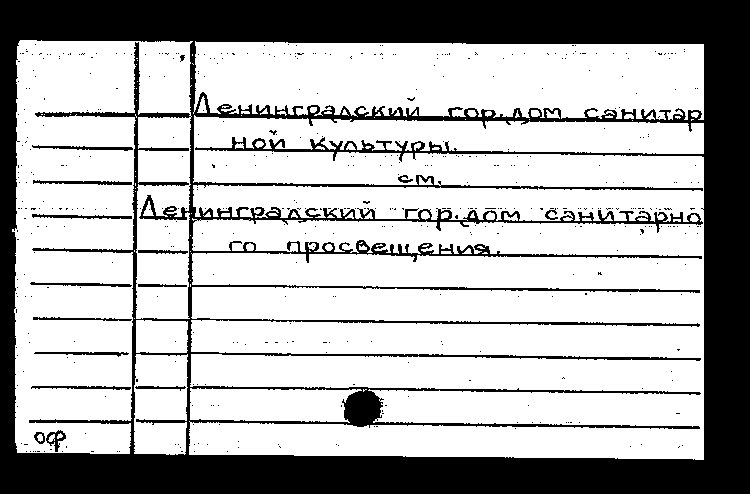 Ленинградский гор.дом санитар
ной культуры.
см.
Ленинградский гор.дом санитарно
го просвещения.
осф